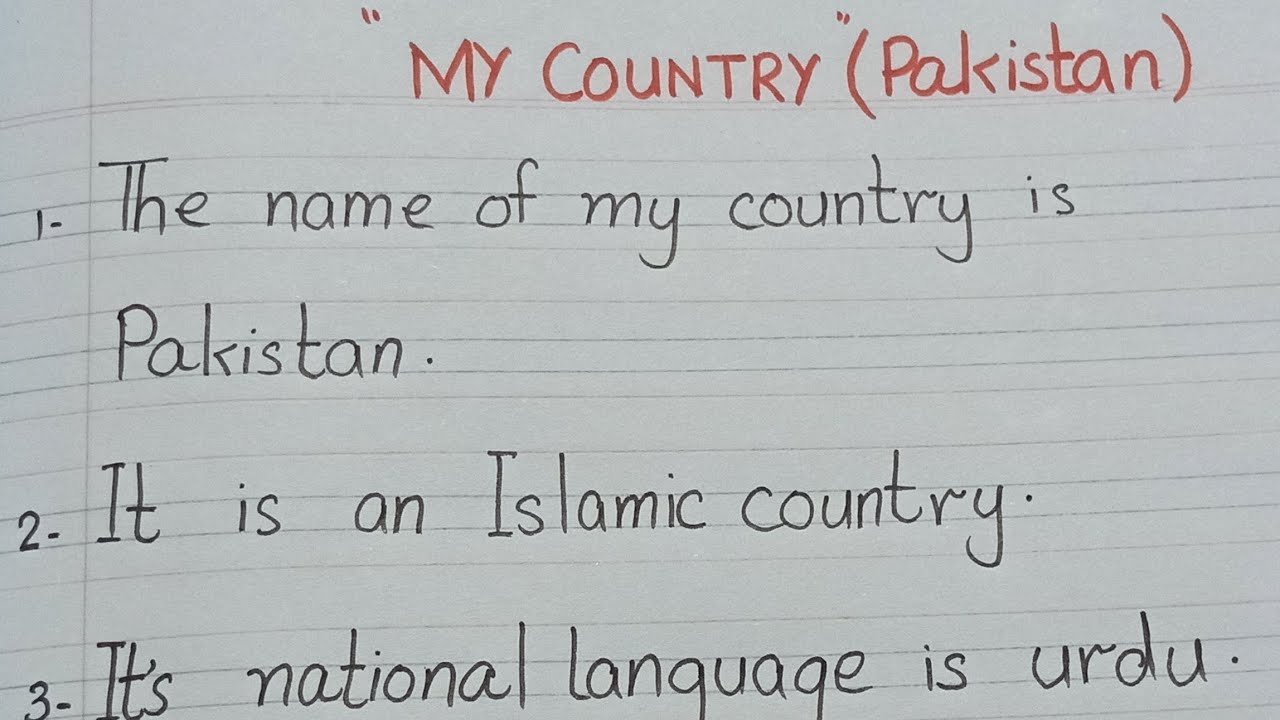 "MY COUNTRY" (Pakistan)
1- The name of my country is
Pakistan.
2- It is an Islamic country.
3- It's national language is urdu.